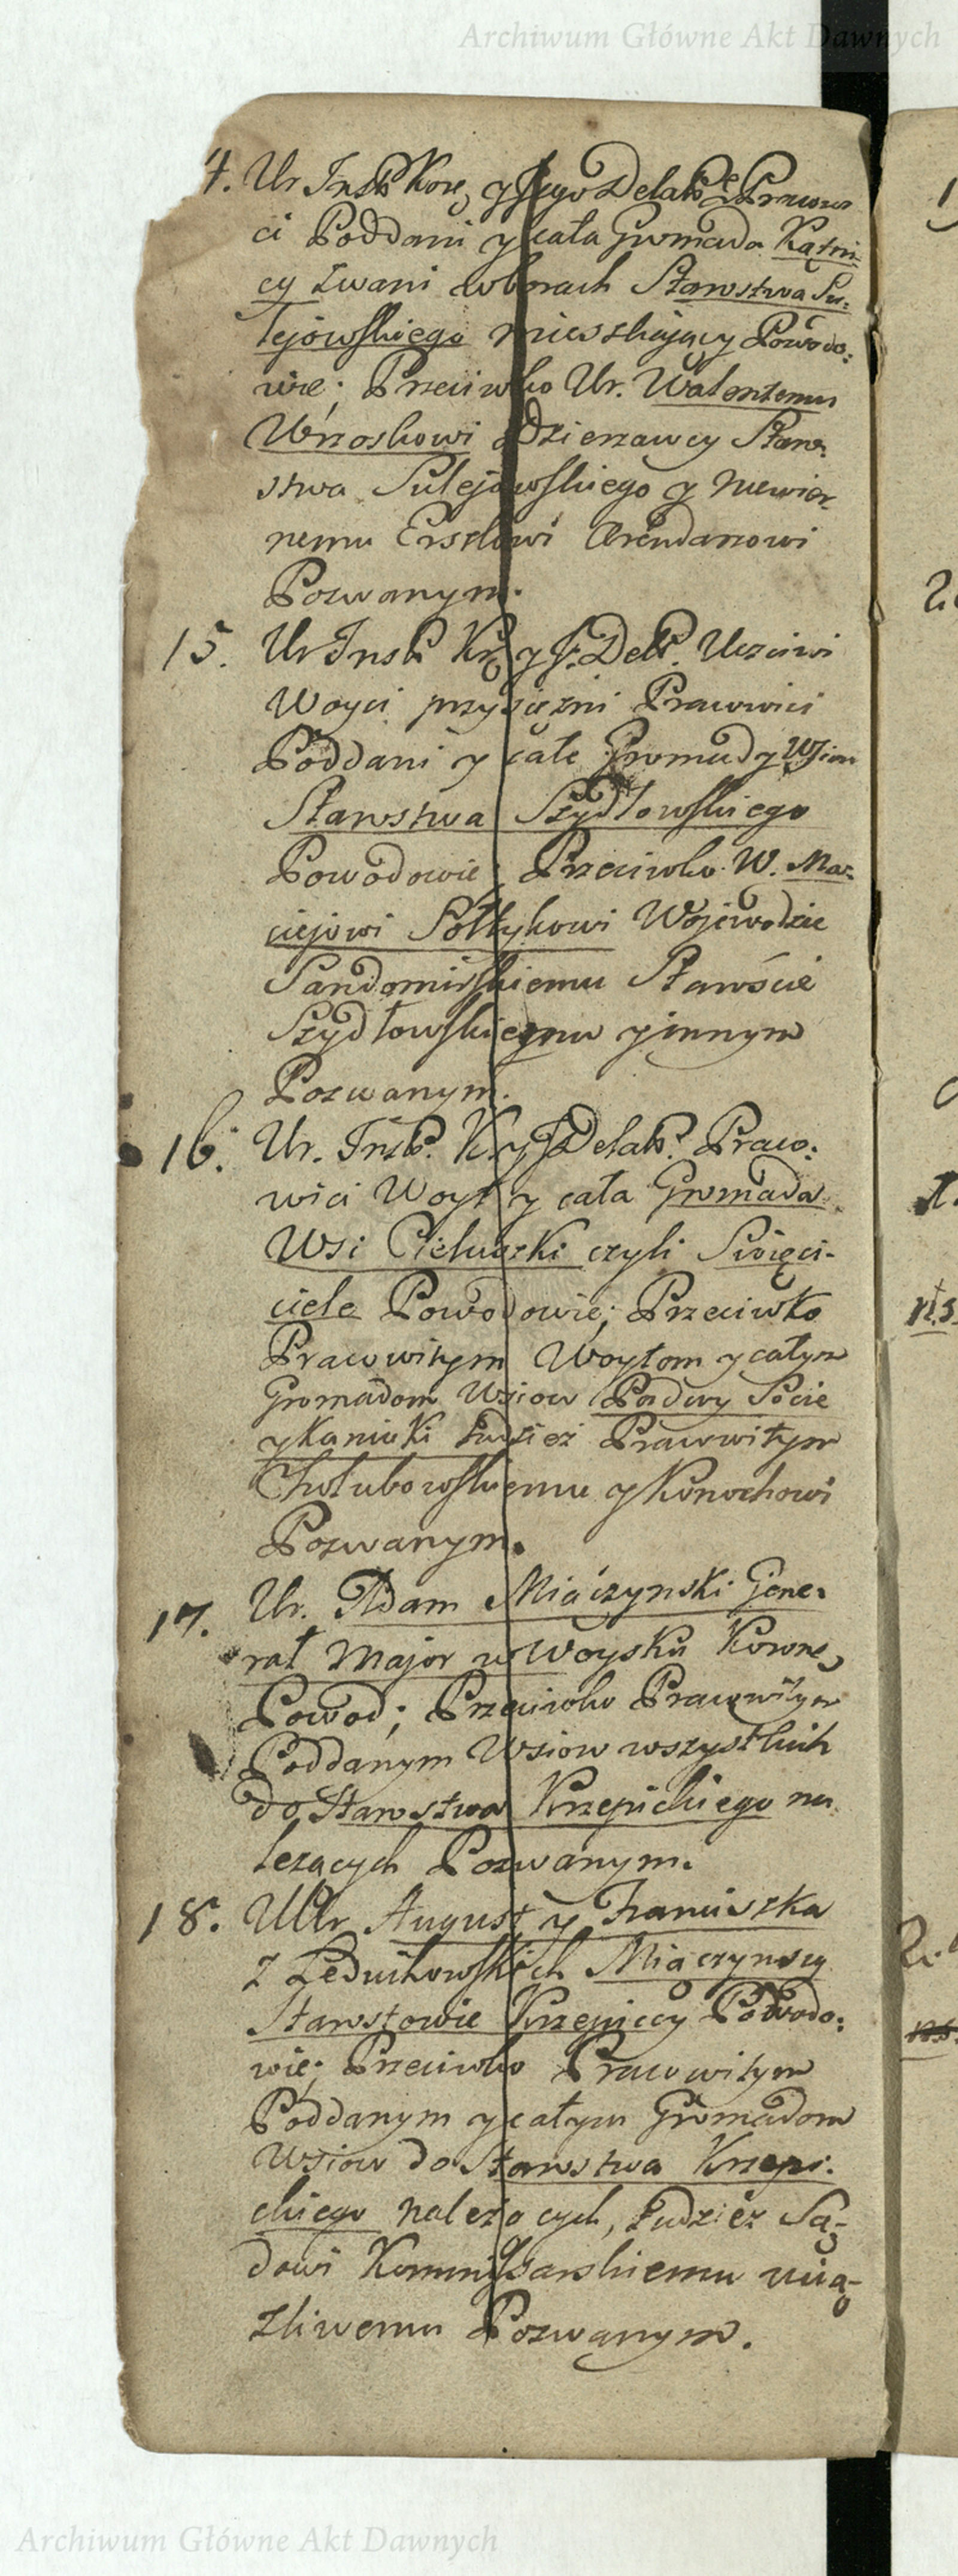 Archiwum Główne Akt Dawnych
4. Ur Inst. Kor. y Jego Delat. Pracowi
ci Poddani y cała Gromada Kątni
cy zwani wborach Starostwa Su-
lejowskiego mieszkaiący Powodo:
wie; Przeciwko Ur. Walentemu
Wrzoskowi Dzierzawcy Staro-
stwa Sulejowskiego y Niewier-
nemu Erszkowi Arendarzowi
Pozwanym.
15. Ur Inst. Kr. y J. Delt. Uczciwi
Woyci przysiężni Pracowici
Poddani y całe Gromady Wsiow
Starostwa Szydłowskiego
Powodowie; Przeciwko W. Ma-
ciejowi Sołtykowi Wojewodzie
Sandomirskiemu Staroście
Szydłowskiemu y innym
Pozwanym.
16. Ur. Inst. K. y J. Delat. Praco:
wici Woyt y cała Gromada
Wsi Cieluszki czyli Święci-
ciele Powodowie; Przeciwko
Pracowitym Woytom y całym
Gromadom Wsiow
y Kaniuki tudzież Pracowitym
Chołubowskiemu y Konochowi
Pozwanym.
17. Ur. Adam Miączynski Gene-
rał Major w Woysku Koron.
Powod; Przeciwko Pracowitym
Poddanym Wsiow wszystkich
do Starostwa Krzepickiego na
lezących Pozwanym.
18. UUr August y Franciszka
z Leduchowskich Miączynscy
Starostowie Krzepiccy Powodo:
wie; Przeciwko Pracowitym
Poddanym y całym Gromadom
Wsiow do Starostwa Krzepi-
ckiego należących, tudzież Są-
dowi Kommissarskiemu ucią-
zliwemu Pozwanym.
Archiwum Główne Akt Dawnych